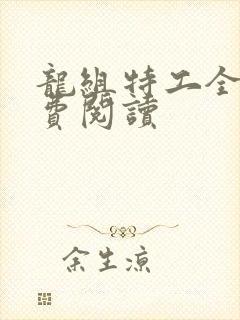 龍組特工全
費閱讀
余生涼